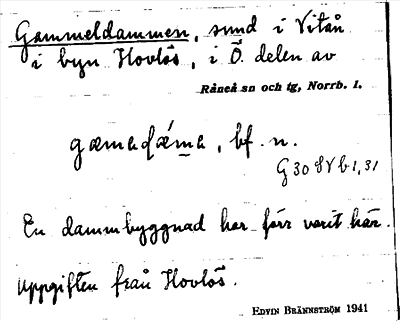 Gammeldammen, sund i Vitån
i byn Hovlös, i Ö. delen av
Råneå sn och tg, Norrb. l.
gæmadǽma, bf. n.
G 30 SV b 1, 31
En dammbyggnad har förr varit här.
Uppgiften från Hovlös.
EDVIN BRÄNNSTRÖM 1941